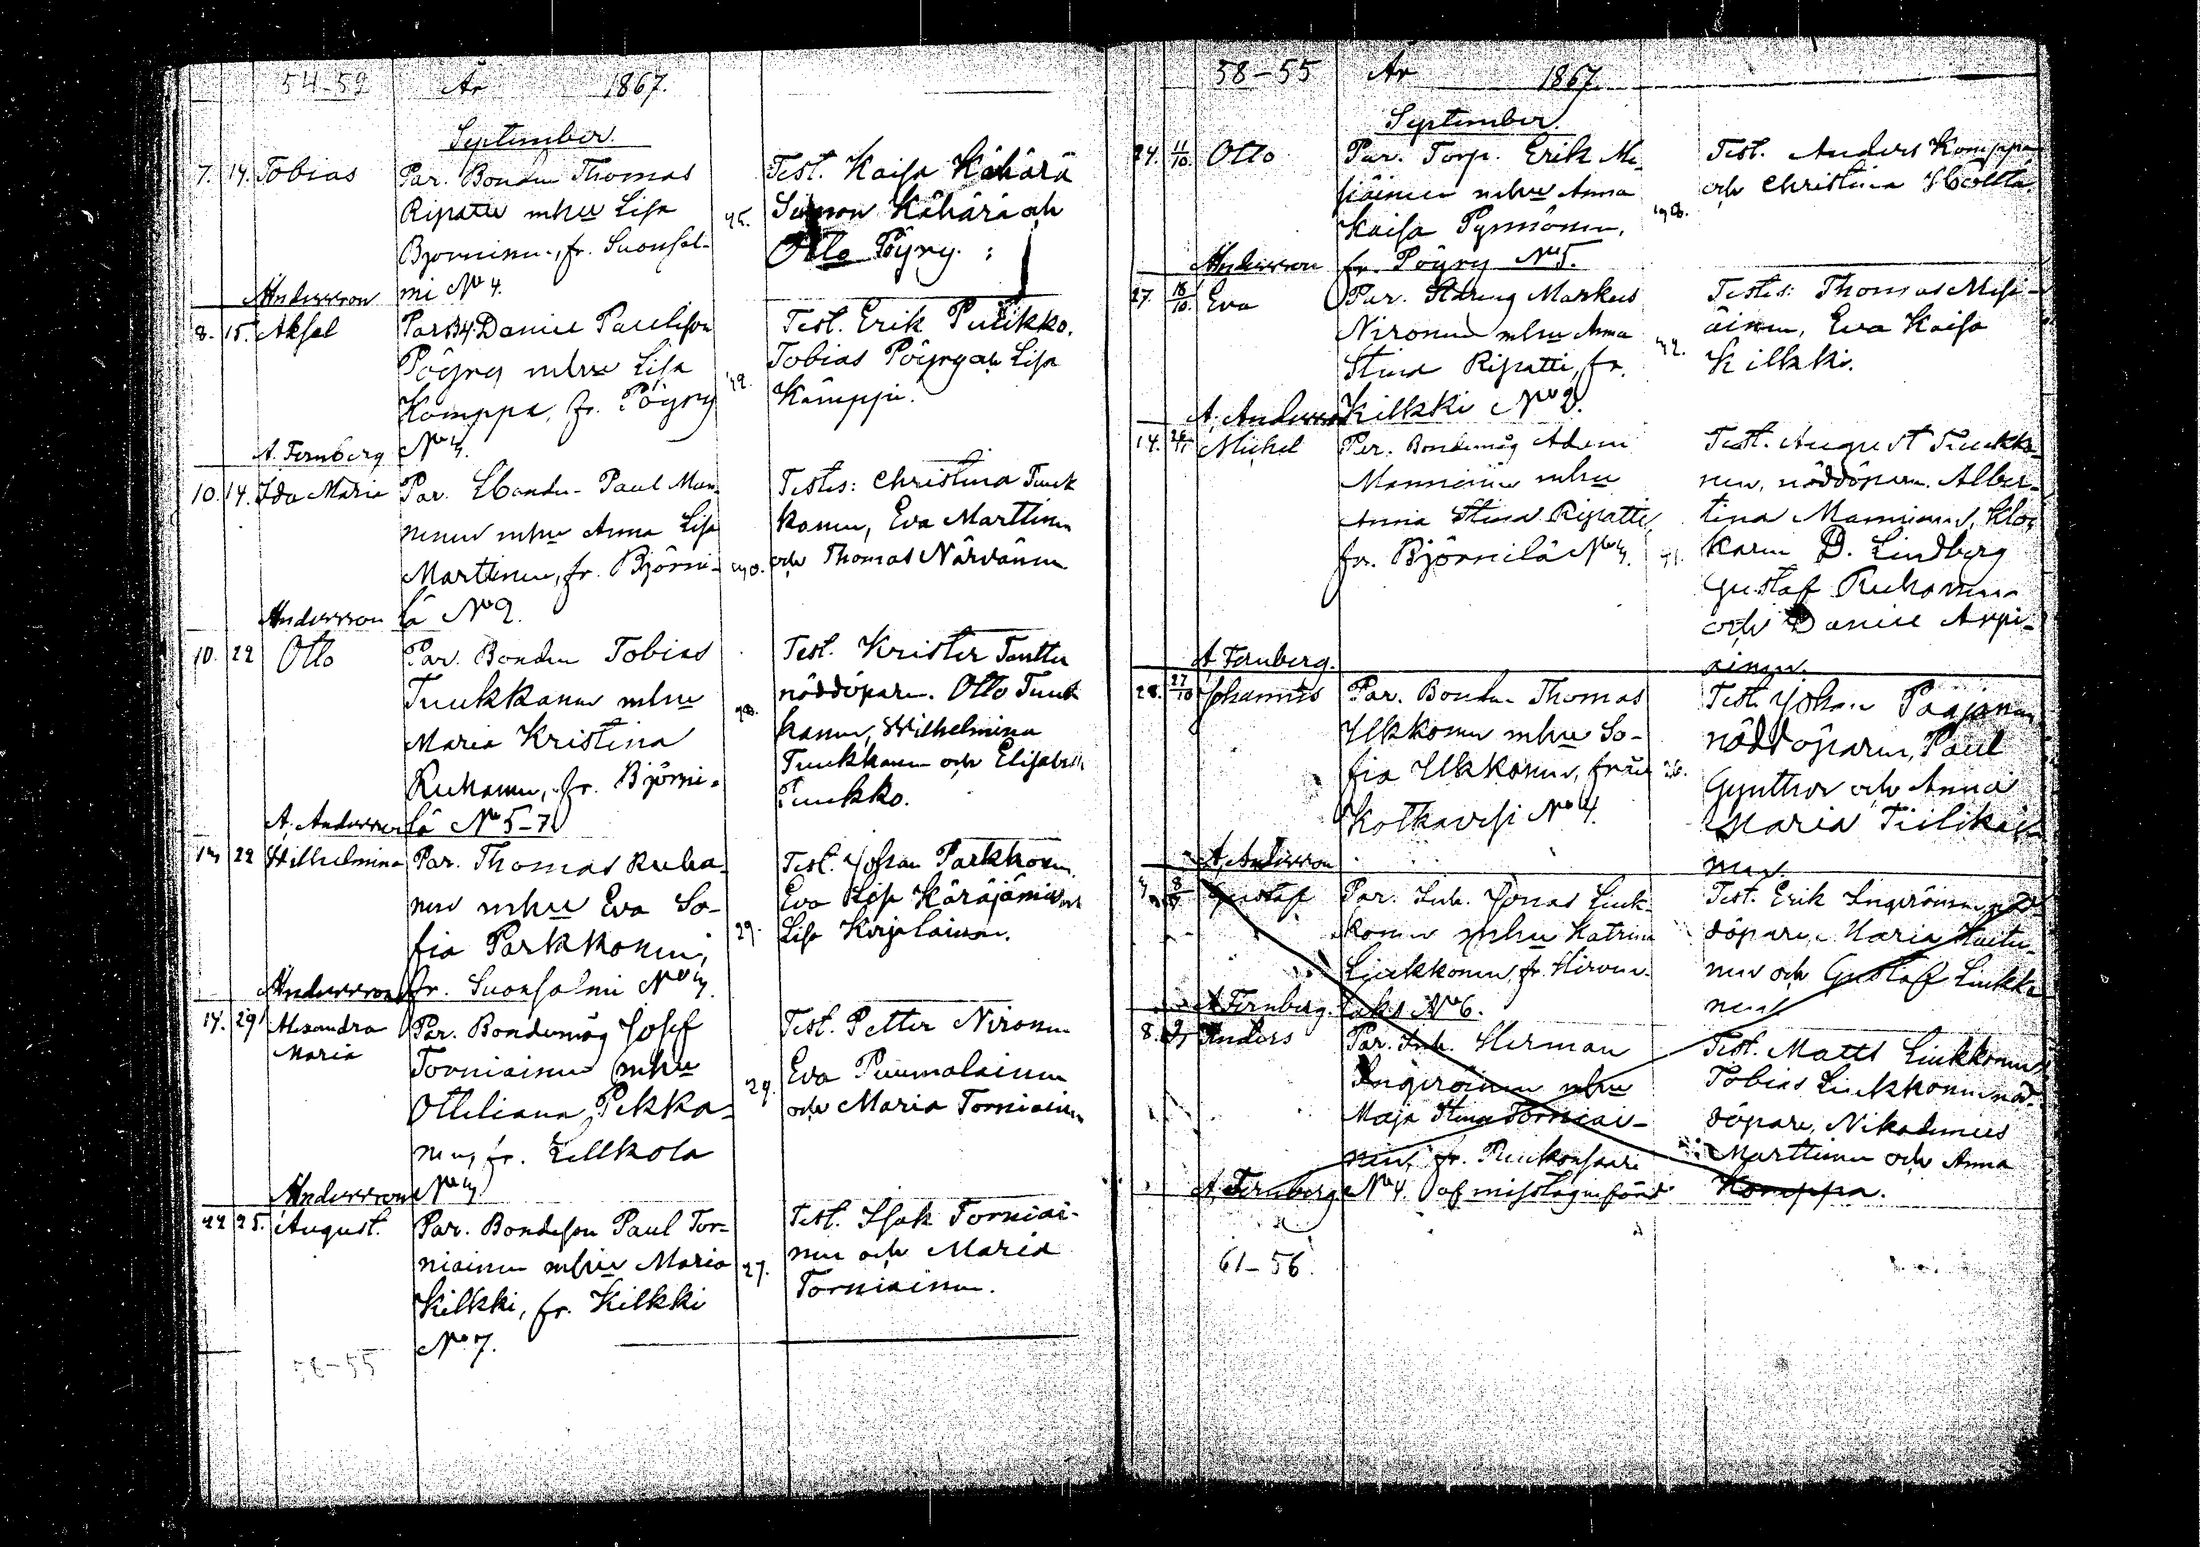 54-52 År 1867.
September.
7. 14. Tobias Par. Bonden Thomas
Ripatti mhu Lisa
Björninen, fr. Suonsal-
Anderson mi No 4.
45.
Test. Kaisa Kähärä
Simon Kähäri och
Otto Pöyry.
8. 15. Aksel Par. Daniel Paulsson
Pöyry mhu Lisa
Komppa, fr. Pöyry
A. Fernberg No 4.
42.
Test. Erik Pulkko,
Tobias Pöyry och Lisa
Kämppi.
10. 14. Ida Maria Par. Paul Man-
ninen mhu Anna Lisa
Marttinen, fr. Björni-
Anderson lä No 2.
40.
Testes: Christina Tuuk
kanen, Eva Marttinen
och Thomas Närvänen
10. 22 Otto Par. Bonden Tobias
Tuukkanen mhu
Maria Kristina
Ruhanen, fr. Björni-
A. Anderson lä No 5-7
Test. Krister Tanttu
nöddöpare. Otto Tuuk
kanen, Wilhelmina
Tuukkanen och Elisabeth
Puukko.
14 22 Wilhelmina Par. Thomas Ruha-
nen mhu Eva So-
fia Parkkonen,
Anderson fr. Suonsalmi No 4.
29.
Test. Johan Parkkonen
Eva Lisa Käräjämies och
Lisa Karjalainen.
14. 29 Alexandra
Maria
Par. Bondemåg Josef
Torniainen mhu
Otteliana Pekka-
nen, fr. Lillkola
Anderson No 4
29.
Test. Petter Nironen
Eva Puumalainen
och Maria Torniainen
22 25. August. Par. Bondeson Paul Tor-
niainen mhu Maria
Kilkki, fr. Kilkki
No 7.
27.
Test. Isak Torniai-
nen och Maria
Torniainen.
58-55
58-55 År 1867.
September.
24. 11/10. Otto Par. Torp. Erik Mi-
siäinen mhu Anna
Kaisa Pynnönen,
Anderson fr. Pöyry No 5.
Test. Anders Komppa
och Christina Holtta
27. 18/10. Eva Par. Dräng Markus
Nironen mhu Anna
Stina Ripatti, fr.
A. Anderson Kilkki No 2.
42.
Testes: Thomas Misi-
äinen, Eva Kaisa
Kilkki.
14. Michel Par. Bondemåg Adam
Manninen mhu
Anna Stina Ripatti,
fr. Björnilä No 4.
A Fernberg.
41.
Test. August Tuukka-
nen, nöddöparen. Alber-
tina Manninen, Kloc-
karen D. Lindberg
Gustaf Ruhanen
och Daniel Arpi-
ainen
28. 27/10 Johannes Par. Bonden Thomas
Ukkonen mhu So-
fia Ukkonen, från
Kotkavesi No 4.
A. Anderson
26.
Test. Johan Paajanen
nöddöparen, Paul
Gynther och Anna
Maria Tiilikai-
nen.
Gustaf Par. Inh. Jonas Liuk-
konen mhu Katrina
Liukkonen, fr. Hirven-
A Fernberg. laks No 6.
Test. Erik Ingeröinen nöd-
döpare, Maria Huitu-
nen och Gustaf Liukko-
nen
8. Anders Par. Inh. Herman
Ingeröinen mhu
Maja Stina Torniai-
nen, fr. Ruukonsaari
A. Fernberg No 4. af misstag införd
Test. Matts Liukkonen
Tobias Liukkonen nöd-
döpare, Nikodemus
Marttinen och Anna
Komppa.
61-56.